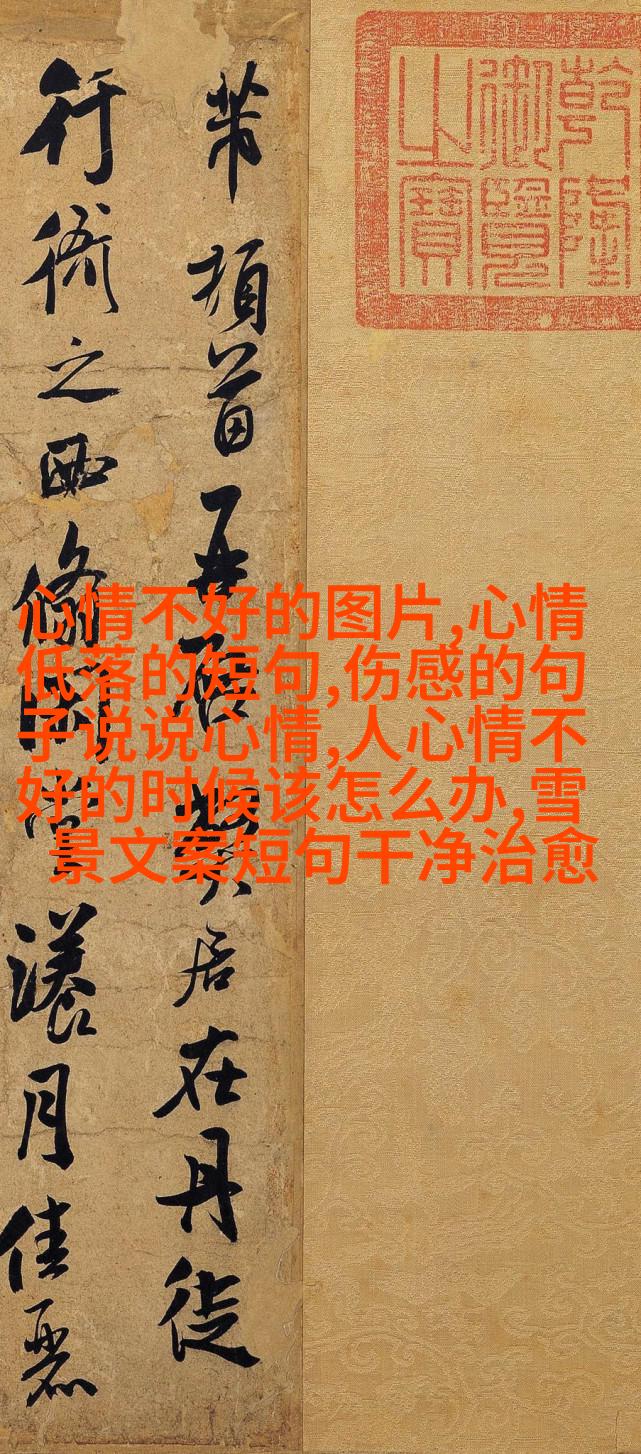 乾隆
御覽
之寶
芾頓首再啓弊居在丹徒
行衙之西翛漾月佳麗
心情不好的图片,心情
低落的短句,伤感的句
子说说心情,人心情不
好的时候该怎么办,雪
景文案短句干净治愈